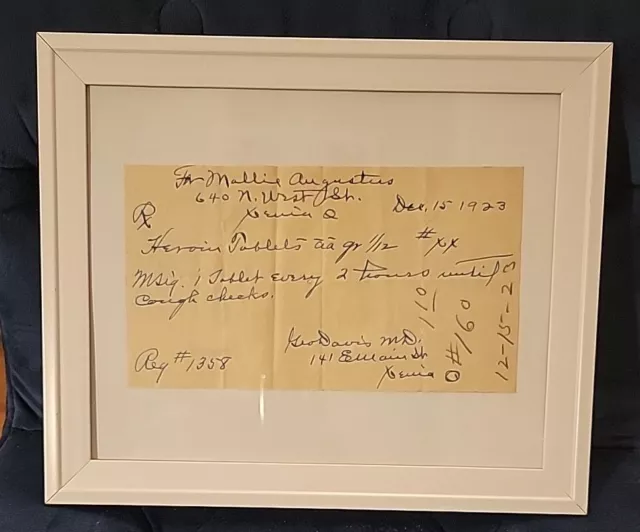 For Mallie Augustus
640 N. West St.
Xenia O
Dec, 15 1923
Rx
Heroin Tablets āā gr 1/12 #XX
MSig. 1 Tablet every 2 hours until
cough checks.
Geo Davis M.D.
141 E Main St
Xenia O
Reg #1358
110
#160
12-15-23